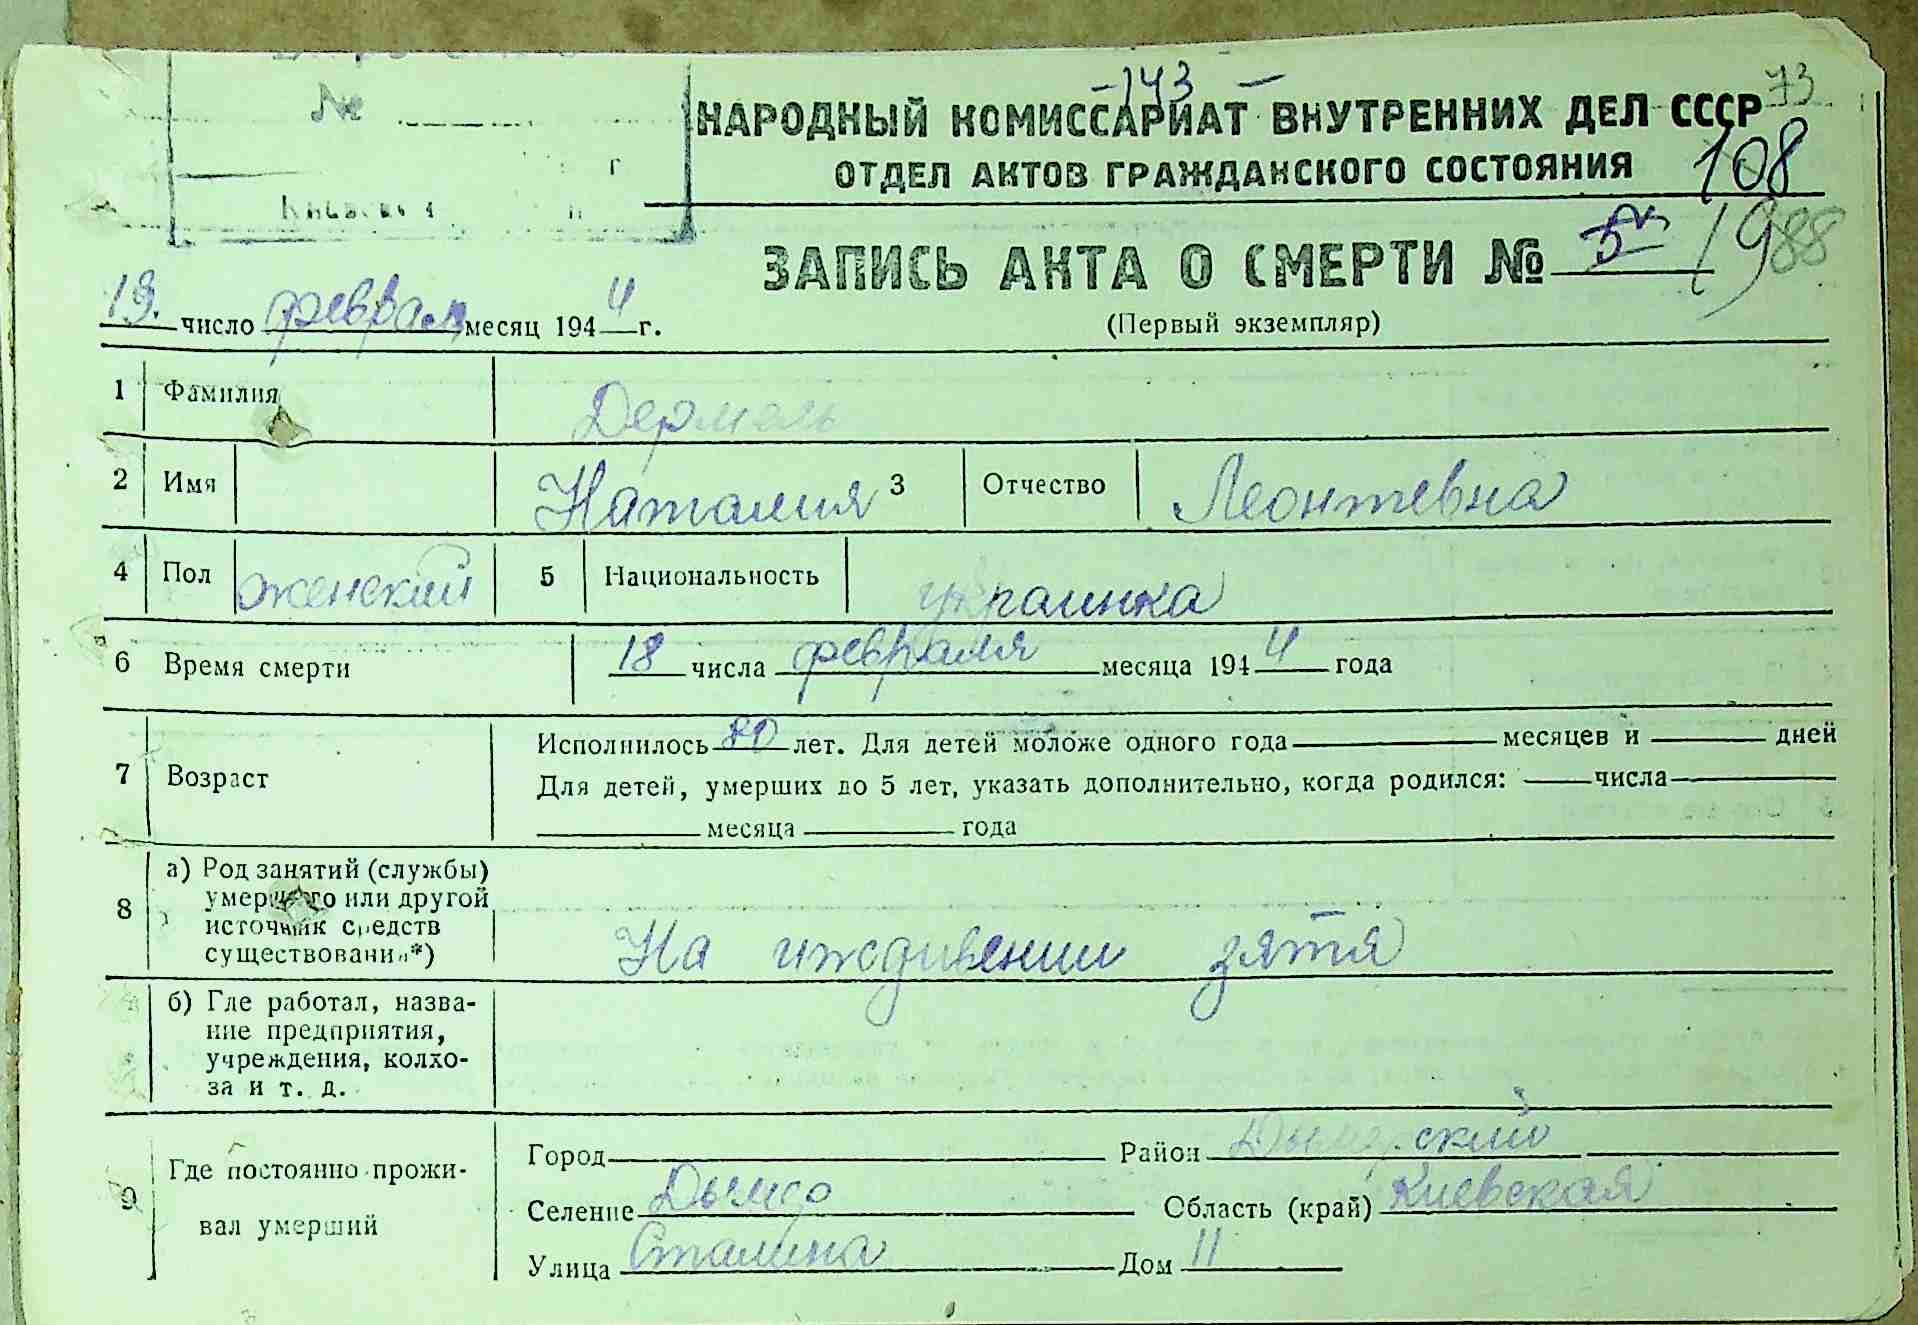 -143-
73
№
г
НАРОДНЫЙ КОМИССАРИАТ ВНУТРЕННИХ ДЕЛ СССР
ОТДЕЛ АКТОВ ГРАЖДАНСКОГО СОСТОЯНИЯ 108
ЗАПИСЬ АКТА О СМЕРТИ №
19 88
19. число феврал месяц 1944 г.
(Первый экземпляр)
1 Фамилия Дермель
2 Имя Наталия 3 Отчество Леонтевна
4 Пол женский 5 Национальность украинка
6 Время смерти 18 числа февраля месяца 1944 года
7 Возраст
Исполнилось 80 лет. Для детей моложе одного года месяцев и дней
Для детей, умерших до 5 лет, указать дополнительно, когда родился: числа
месяца года
8 а) Род занятий (службы)
умершего или другой
источник средств
существования*)
На иждивении зятя
б) Где работал, назва-
ние предприятия,
учреждения, колхо-
за и т. д.
9 Где постоянно прожи-
вал умерший
Город Район Дымерский
Селение Дымер Область (край) Киевская
Улица Сталина Дом 11